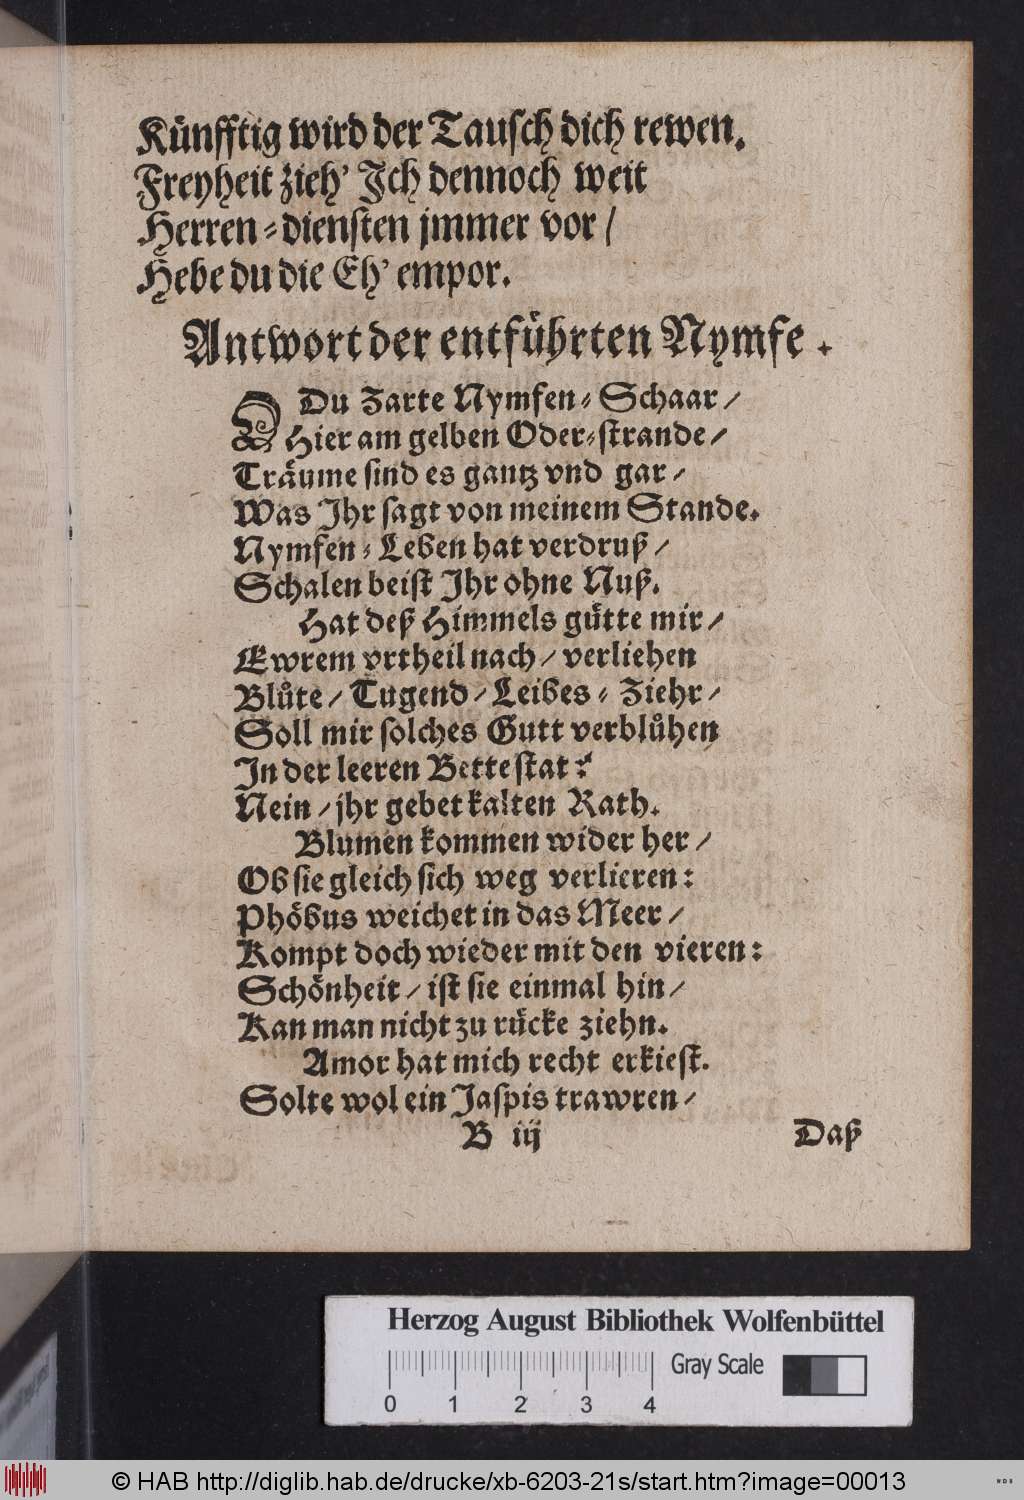 Künfftig wird der Tausch dich rewen.
Freyheit zieh' Ich dennoch weit
Herren-diensten jmmer vor /
Hebe du die Eh' empor.
Antwort der entführten Nymfe.
O Du Zarte Nymfen-Schaar /
Hier am gelben Oder-strande /
Träume sind es gantz vnd gar /
Was Ihr sagt von meinem Stande.
Nymfen-Leben hat verdruß /
Schalen beist Ihr ohne Nuß.
Hat deß Himmels gütte mir /
Ewrem vrtheil nach / verliehen
Blůte / Tugend / Leibes-Ziehr /
Soll mir solches Gutt verblůhen
In der leeren Bettestat?
Nein / jhr gebet kalten Rath.
Blumen kommen wider her /
Ob sie gleich sich weg verlieren:
Phöbus weichet in das Meer /
Kompt doch wieder mit den vieren:
Schönheit / ist sie einmal hin /
Kan man nicht zu rücke ziehn.
Amor hat mich recht erkiest.
Solte wol ein Jaspis trawren /
B iij
Daß
Herzog August Bibliothek Wolfenbüttel
Gray Scale
0 1 2 3 4
© HAB http://diglib.hab.de/drucke/xb-6203-21s/start.htm?image=00013